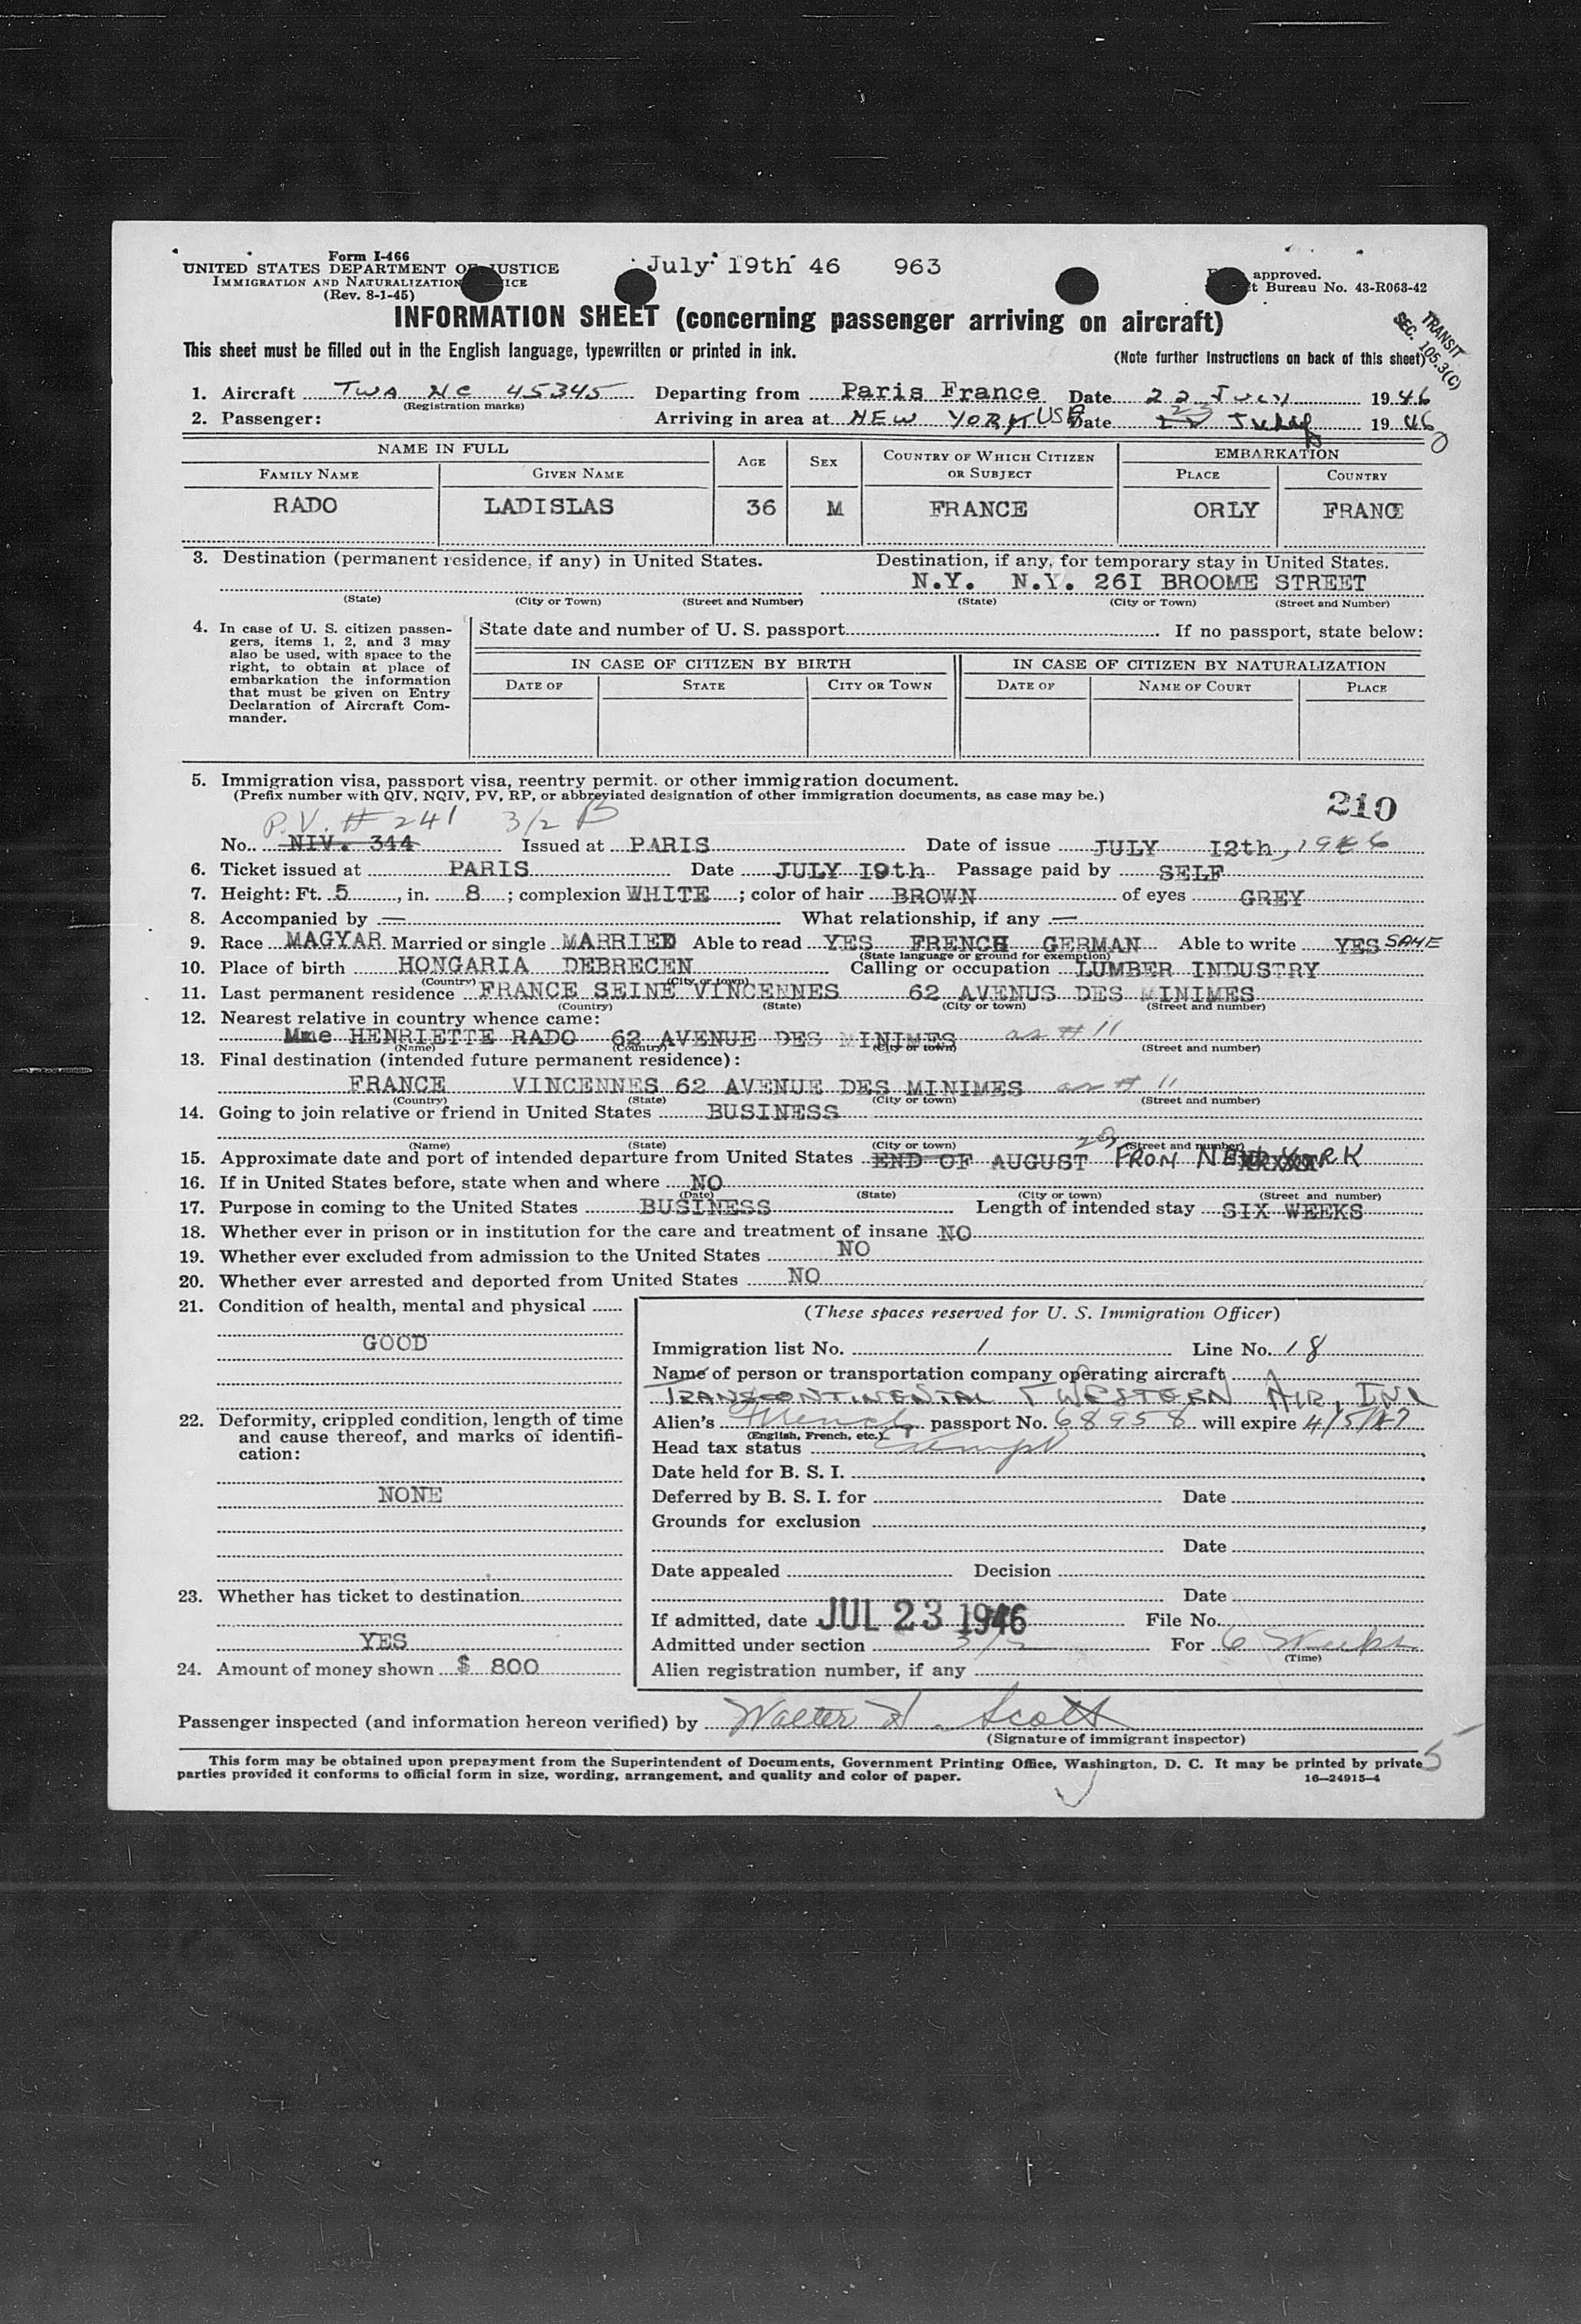 Form I-466
UNITED STATES DEPARTMENT OF JUSTICE
IMMIGRATION AND NATURALIZATION SERVICE
(Rev. 8-1-45)
July 19th 46 963
approved.
t Bureau No. 43-R063-42
INFORMATION SHEET (concerning passenger arriving on aircraft)
TRANSIT
SEC. 105.3(C)
This sheet must be filled out in the English language, typewritten or printed in ink.
(Note further instructions on back of this sheet)
1. Aircraft TWA NC 45345 Departing from Paris France Date 22 July 1946
(Registration marks)
2. Passenger: Arriving in area at NEW YORK USA Date 23 July 1946
NAME IN FULL AGE SEX COUNTRY OF WHICH CITIZEN OR SUBJECT EMBARKATION
FAMILY NAME GIVEN NAME PLACE COUNTRY
RADO LADISLAS 36 M FRANCE ORLY FRANCE
3. Destination (permanent residence, if any) in United States. Destination, if any, for temporary stay in United States.
N.Y. N.Y. 26I BROOME STREET
(State) (City or Town) (Street and Number) (State) (City or Town) (Street and Number)
4. In case of U. S. citizen passen-
gers, items 1, 2, and 3 may
also be used, with space to the
right, to obtain at place of
embarkation the information
that must be given on Entry
Declaration of Aircraft Com-
mander.
State date and number of U. S. passport If no passport, state below:
IN CASE OF CITIZEN BY BIRTH IN CASE OF CITIZEN BY NATURALIZATION
DATE OF STATE CITY OR TOWN DATE OF NAME OF COURT PLACE
5. Immigration visa, passport visa, reentry permit, or other immigration document.
(Prefix number with QIV, NQIV, PV, RP, or abbreviated designation of other immigration documents, as case may be.)
210
P.V. # 241 3/2 B
No. NIV. 344 Issued at PARIS Date of issue JULY I2th, 1946
6. Ticket issued at PARIS Date JULY I9th Passage paid by SELF
7. Height: Ft. 5, in. 8; complexion WHITE; color of hair BROWN of eyes GREY
8. Accompanied by — What relationship, if any —
9. Race MAGYAR Married or single MARRIED Able to read YES FRENCH GERMAN Able to write YES SAME
(State language or ground for exemption)
10. Place of birth HONGARIA DEBRECEN Calling or occupation LUMBER INDUSTRY
(Country) (City or town)
11. Last permanent residence FRANCE SEINE VINCENNES 62 AVENUS DES MINIMES
(Country) (State) (City or town) (Street and number)
12. Nearest relative in country whence came:
Mme HENRIETTE RADO 62 AVENUE DES MINIMES as # 11
(Name) (Country) (City or town) (Street and number)
13. Final destination (intended future permanent residence):
FRANCE VINCENNES 62 AVENUE DES MINIMES as # 11
(Country) (State) (City or town) (Street and number)
14. Going to join relative or friend in United States BUSINESS
(Name) (State) (City or town) (Street and number)
15. Approximate date and port of intended departure from United States END OF AUGUST FROM NEW YORK
16. If in United States before, state when and where NO
(Date) (State) (City or town) (Street and number)
17. Purpose in coming to the United States BUSINESS Length of intended stay SIX WEEKS
18. Whether ever in prison or in institution for the care and treatment of insane NO
19. Whether ever excluded from admission to the United States NO
20. Whether ever arrested and deported from United States NO
21. Condition of health, mental and physical
GOOD
22. Deformity, crippled condition, length of time
and cause thereof, and marks of identifi-
cation:
NONE
23. Whether has ticket to destination
YES
24. Amount of money shown $ 800
(These spaces reserved for U. S. Immigration Officer)
Immigration list No. 1 Line No. 18
Name of person or transportation company operating aircraft
TRANSCONTINENTAL & WESTERN AIR, INC
Alien's French passport No. 68958 will expire 4/5/47
(English, French, etc.)
Head tax status Exempt
Date held for B. S. I.
Deferred by B. S. I. for Date
Grounds for exclusion
Date
Date appealed Decision
Date
If admitted, date JUL 23 1946 File No.
Admitted under section 3/2 For 6 Weeks
(Time)
Alien registration number, if any
Passenger inspected (and information hereon verified) by Walter H. Scott
(Signature of immigrant inspector)
This form may be obtained upon prepayment from the Superintendent of Documents, Government Printing Office, Washington, D. C. It may be printed by private
parties provided it conforms to official form in size, wording, arrangement, and quality and color of paper.
16—24915-4
5